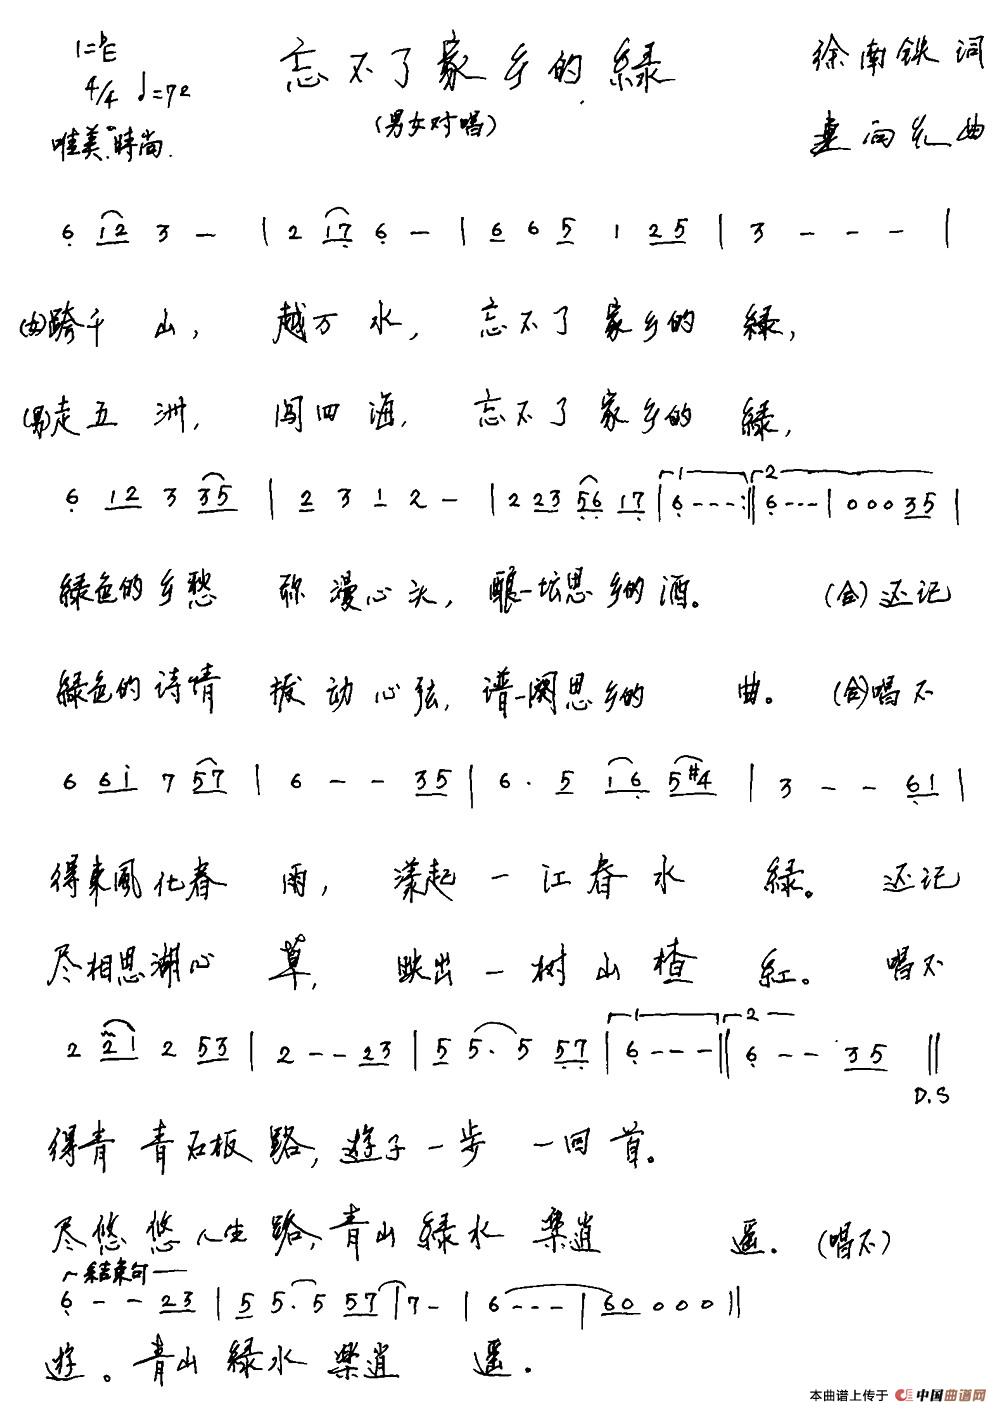 1=♭E
忘不了家乡的綠
徐南铁 词
4/4 ♩=72
(男女对唱)
唯美.時尚.
曲
6 12 3 — | 2 17 6 — | 6 6 5 1 25 | 3 - - - |
(女)跨千 山, 越万 水, 忘不了 家乡的 綠,
(男)走五 洲, 闯四 海, 忘不了 家乡的 綠,
6 12 3 35 | 2 3 1 2 - | 2 23 56 17 | 1 6 - - - :|| 2 6 - - - | 0 0 0 35 |
綠色的乡愁 弥漫心头, 酿一坛思乡的酒。 (合)还记
綠色的诗情 拨动心弦, 谱一阕思乡的 曲。 (合)唱不
6 61 7 57 | 6 - - 35 | 6 · 5 16 5#4 | 3 - - 61 |
得東風化春 雨, 漾起一江春水 綠。 还记
尽相思湖心 草, 映出一树山楂 紅。 唱不
2 21 2 53 | 2 - - 23 | 5 5 · 5 57 | 1 6 - - - || 2 6 - - 35 ||
D.S
得青 青石板 路, 遊子一步 一回首。
尽悠悠人生 路, 青山綠水 樂逍 遥。 (唱不)
~結束句—
6 - - 23 | 5 5 · 5 57 | 7 - | 6 - - - | 60 0 0 0 ||
遊。青山 綠水 樂逍 遥.
本曲谱上传于 中国曲谱网